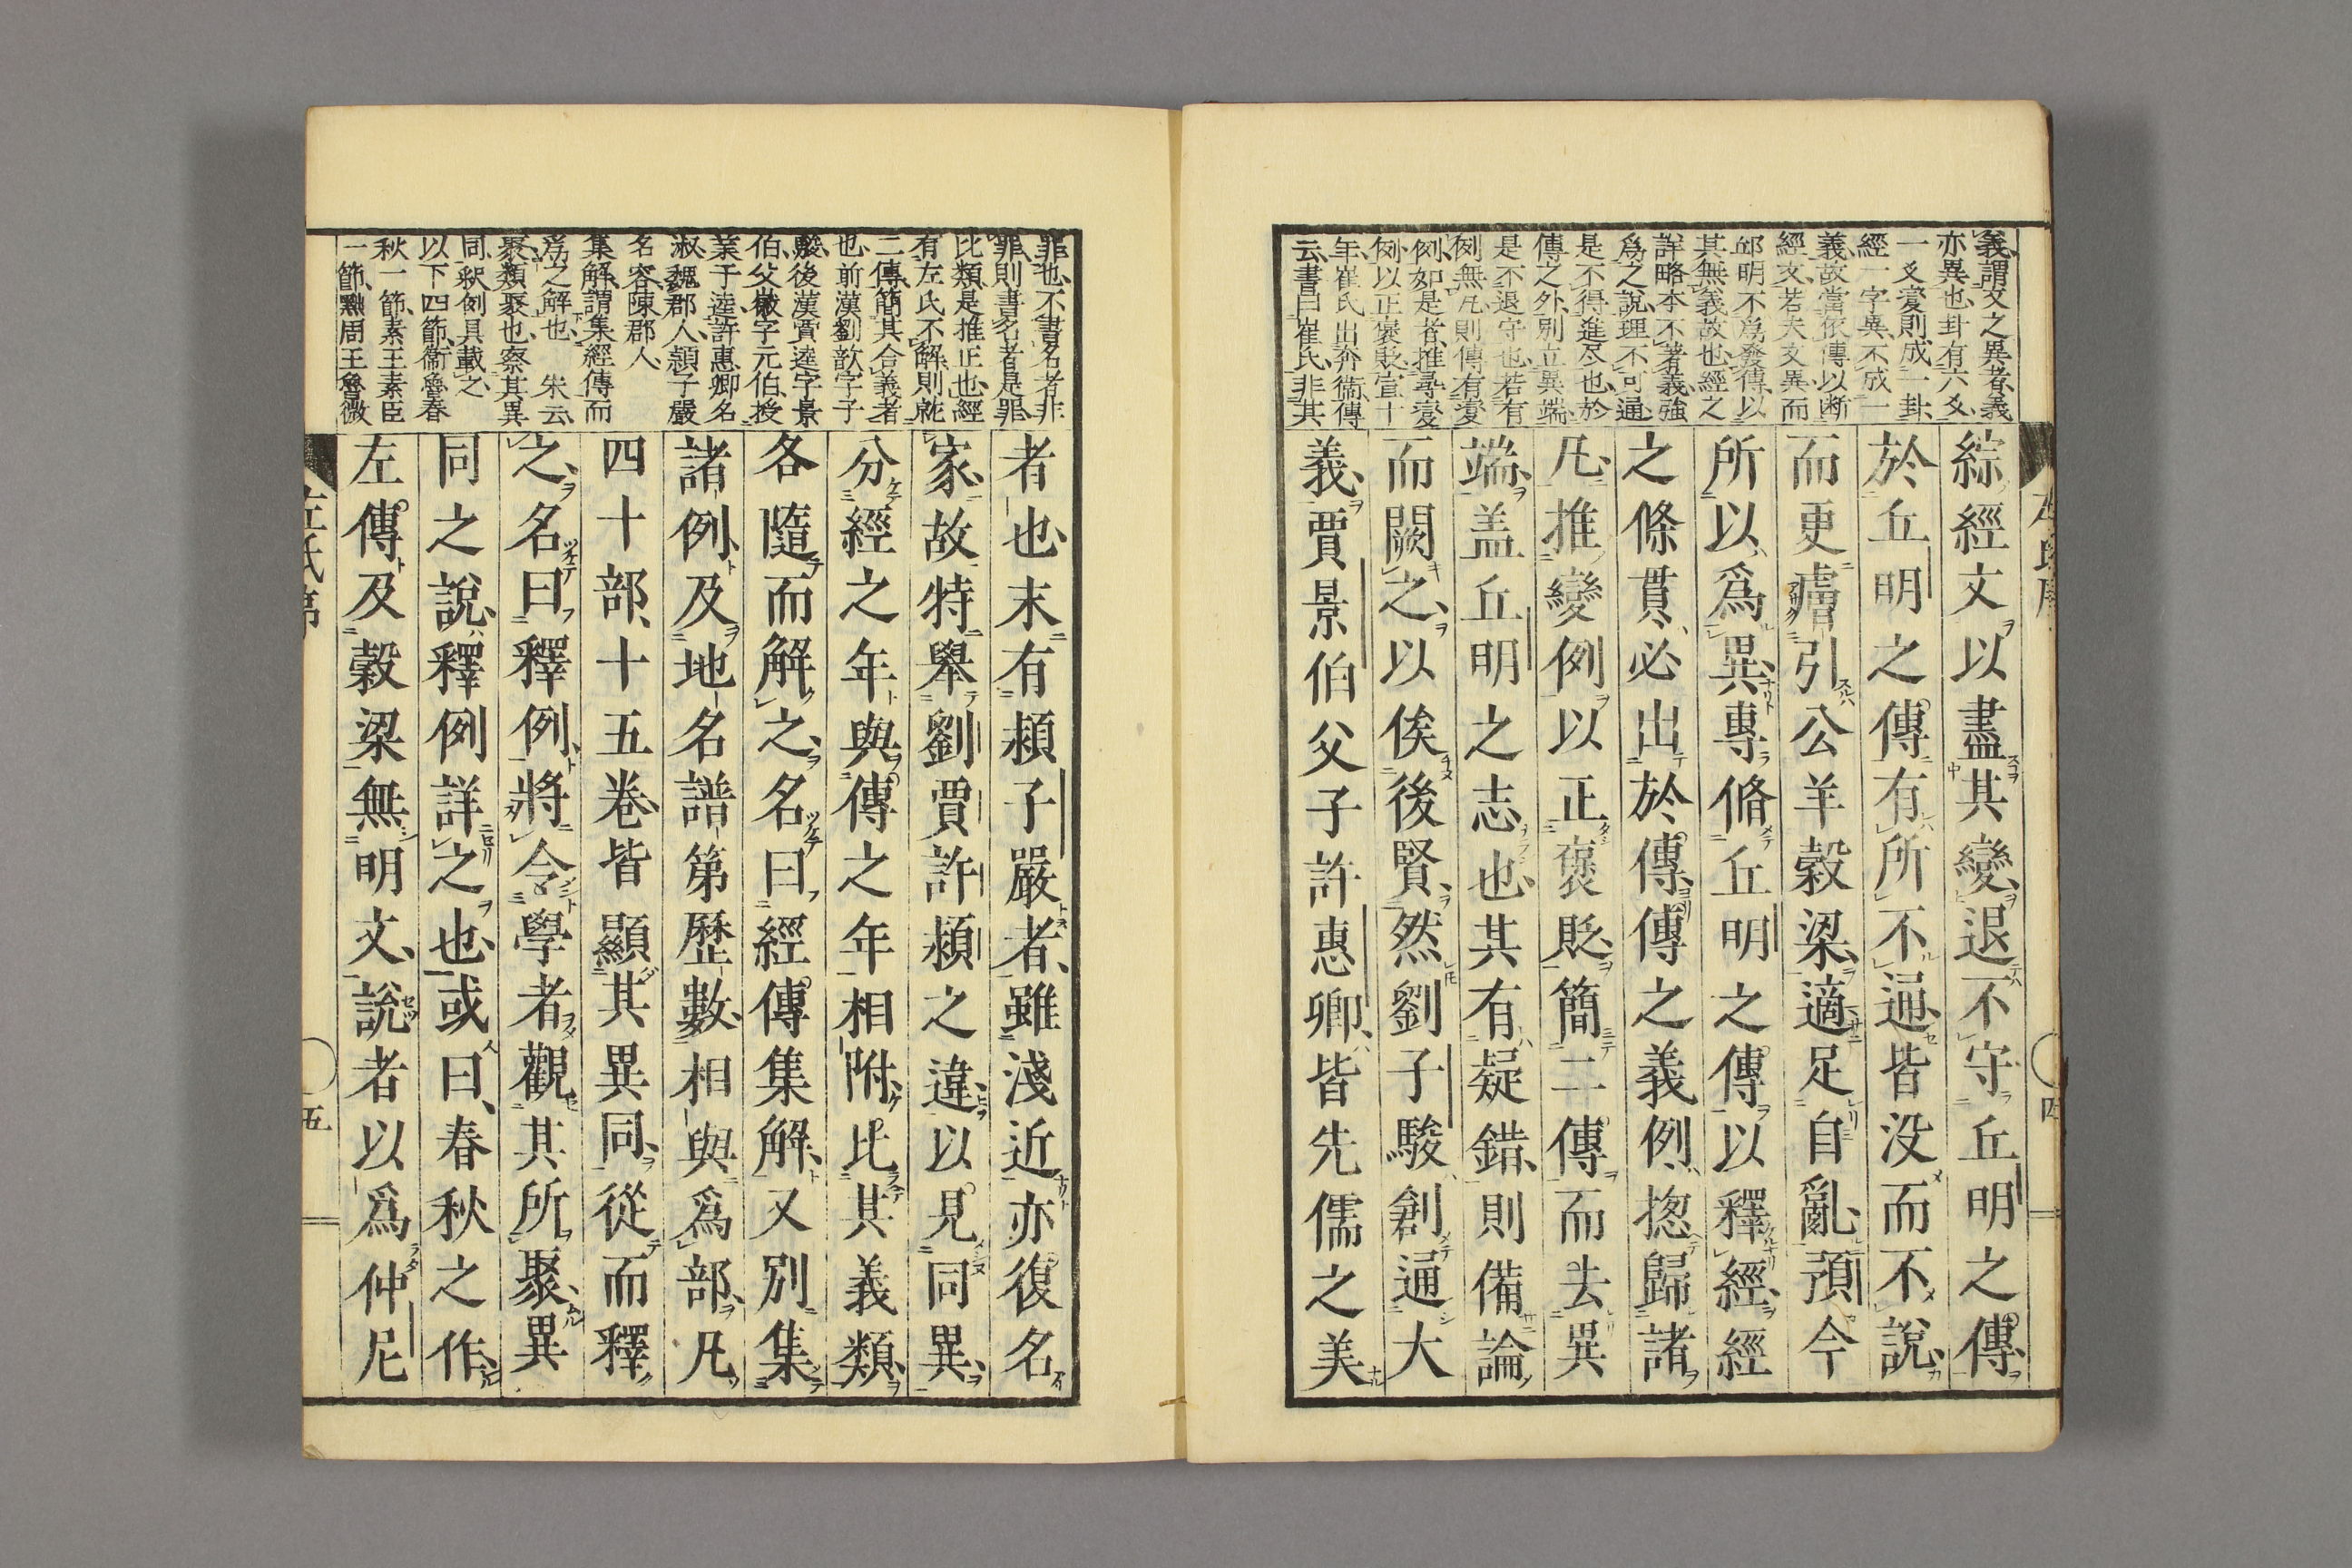 義謂文之異者義
亦異也卦有六爻
一爻變則成一卦
經一字異不成一
義故當依傳以断
經文若夫文異而
邱明不爲發傳以
其無義故也經之
詳略本不著義強
爲之說理不可通
是不得進尽也於
傳之外別立異端
是不退守也若有
例無凡則傳有變
例如是者推尋變
例以正褒貶宣十
年崔氏出奔衞傳
云書曰崔氏非其
綜經文以盡其變退不守丘明之傳
於丘明之傳有所不通皆没而不說
而更膚引公羊穀梁適足自亂預今
所以爲異專脩丘明之傳以釋經經
之條貫必出於傳傳之義例揔歸諸
凡推變例以正褒貶簡二傳而去異
端盖丘明之志也其有疑錯則備論
而闕之以俟後賢然劉子駿創通大
義賈景伯父子許惠卿皆先儒之美
罪也不書名者非
罪則書名者是罪
比類是推正也經
有左氏不解則就
二傳簡其合義者
也前漢劉歆字子
駿後漢賈逵字景
伯父徽字元伯授
業于逵許惠卿名
淑魏郡人穎子嚴
名容陳郡人
集解謂集經傳而
爲之解也 朱云
聚類聚也察其異
同釈例具載之
以下四節衞魯春
秋一節素王素臣
一節黙周王魯微
者也末有潁子嚴者雖淺近亦復名
家故特舉劉賈許潁之違以見同異
分經之年與傳之年相附比其義類
各隨而解之名曰經傳集解又別集
諸例及地名譜第歷數相與爲部凡
四十部十五卷皆顯其異同從而釋
之名曰釋例將令學者觀其所聚異
同之說釋例詳之也或曰春秋之作
左傳及穀梁無明文說者以爲仲尼
五